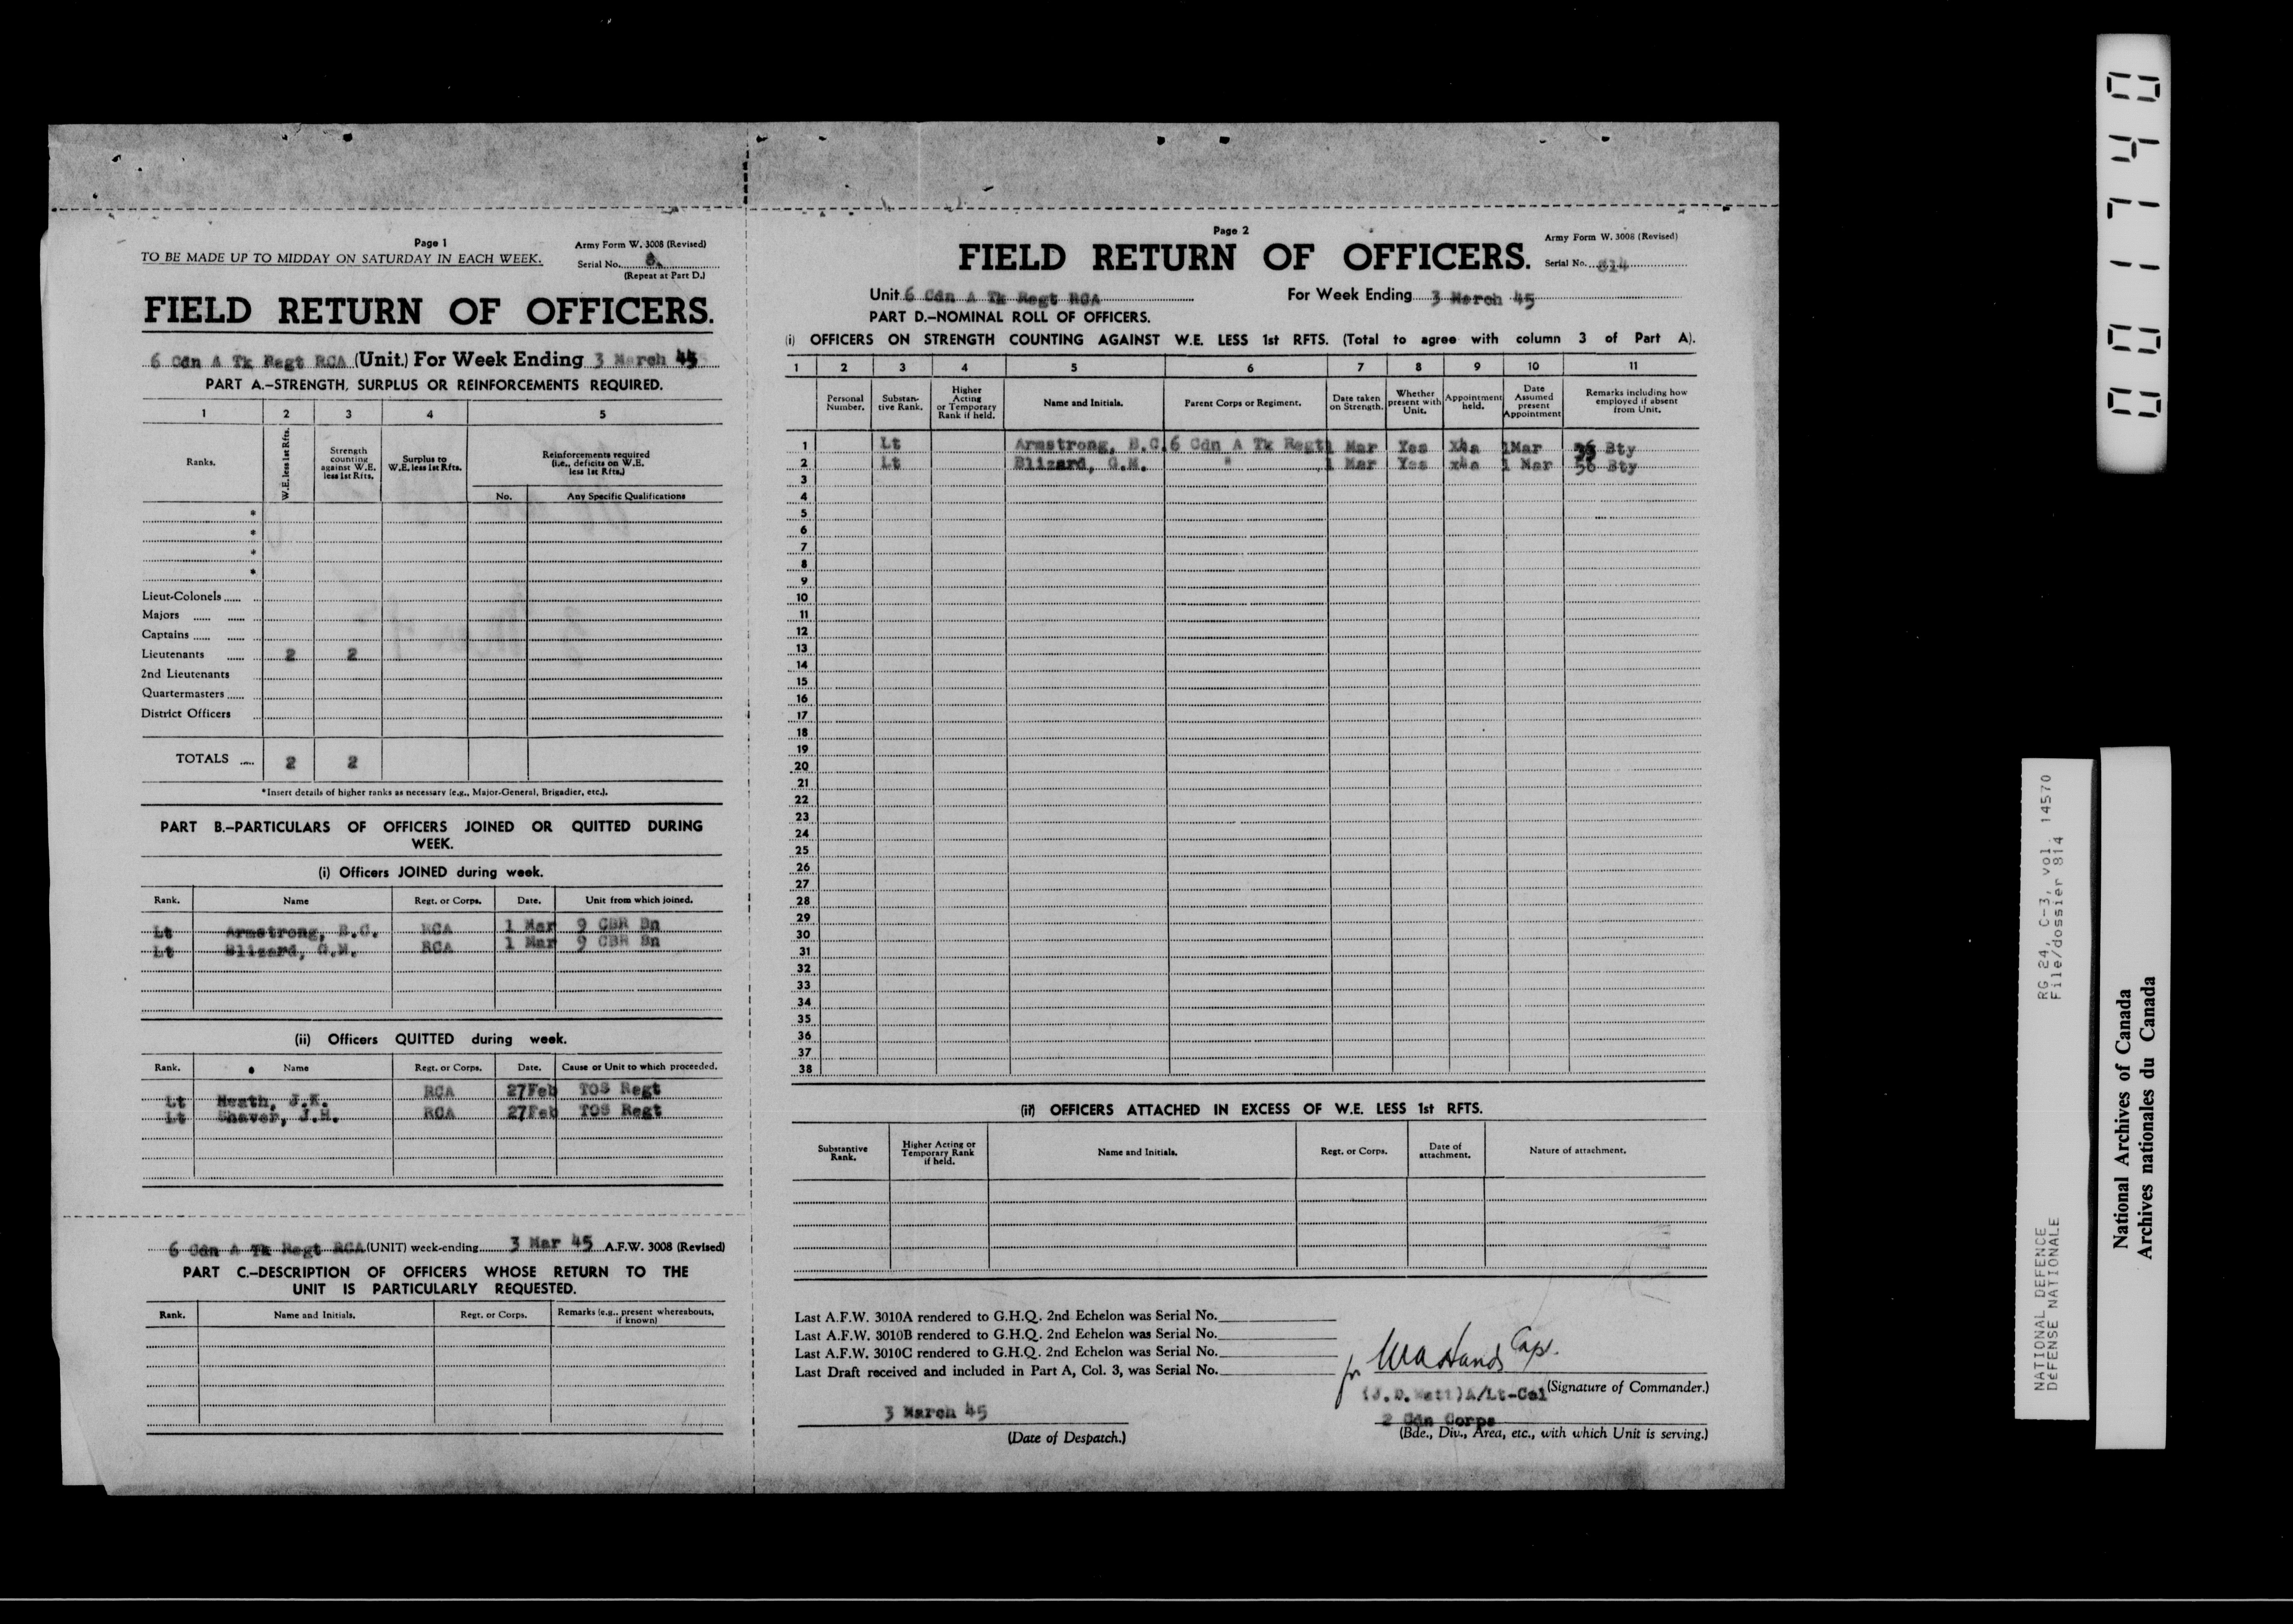 Page 1
TO BE MADE UP TO MIDDAY ON SATURDAY IN EACH WEEK.
Army Form W. 3008 (Revised)
Serial No.
(Repeat at Part D.)
FIELD RETURN OF OFFICERS.
6 Cdn A Tk Regt RCA (Unit.) For Week Ending 3 March 45
PART A.-STRENGTH, SURPLUS OR REINFORCEMENTS REQUIRED.
1 2 3 4 5
Ranks. W.E. less 1st Rfts. Strength counting against W.E. less 1st Rfts. Surplus to W.E. less 1st Rfts. Reinforcements required (i.e., deficits on W.E. less 1st Rfts.)
No. Any Specific Qualifications
*
*
*
*
Lieut-Colonels
Majors
Captains
Lieutenants 2 2
2nd Lieutenants
Quartermasters
District Officers
TOTALS 2 2
*Insert details of higher ranks as necessary (e.g., Major-General, Brigadier, etc.).
PART B.-PARTICULARS OF OFFICERS JOINED OR QUITTED DURING
WEEK.
(i) Officers JOINED during week.
Rank. Name Regt. or Corps. Date. Unit from which joined.
Lt Armstrong, B.C. RCA 1 Mar 9 CBR Bn
Lt Blizard, G.M. RCA 1 Mar 9 CBR Bn
(ii) Officers QUITTED during week.
Rank. Name Regt. or Corps. Date. Cause or Unit to which proceeded.
Lt Heath, J.K. RCA 27Feb TOS Regt
Lt Shaver, J.H. RCA 27Feb TOS Regt
6 Cdn A Tk Regt RCA (UNIT) week-ending 3 Mar 45 A.F.W. 3008 (Revised)
PART C.-DESCRIPTION OF OFFICERS WHOSE RETURN TO THE
UNIT IS PARTICULARLY REQUESTED.
Rank. Name and Initials. Regt. or Corps. Remarks (e.g., present whereabouts, if known)
Page 2
FIELD RETURN OF OFFICERS.
Army Form W. 3008 (Revised)
Serial No. 814
Unit 6 Cdn A Tk Regt RCA For Week Ending 3 March 45
PART D.-NOMINAL ROLL OF OFFICERS.
(i) OFFICERS ON STRENGTH COUNTING AGAINST W.E. LESS 1st RFTS. (Total to agree with column 3 of Part A).
1 2 3 4 5 6 7 8 9 10 11
Personal Number. Substantive Rank. Higher Acting or Temporary Rank if held. Name and Initials. Parent Corps or Regiment. Date taken on Strength. Whether present with Unit. Appointment held. Date Assumed present Appointment Remarks including how employed if absent from Unit.
1 Lt Armstrong, B.C. 6 Cdn A Tk Regt 1 Mar Yes x4a 1Mar Bty
2 Lt Blizard, G.M. " 1 Mar Yes x4a 1 Mar 56 Bty
3
4
5
6
7
8
9
10
11
12
13
14
15
16
17
18
19
20
21
22
23
24
25
26
27
28
29
30
31
32
33
34
35
36
37
38
(ii) OFFICERS ATTACHED IN EXCESS OF W.E. LESS 1st RFTS.
Substantive Rank. Higher Acting or Temporary Rank if held. Name and Initials. Regt. or Corps. Date of attachment. Nature of attachment.
Last A.F.W. 3010A rendered to G.H.Q. 2nd Echelon was Serial No.
Last A.F.W. 3010B rendered to G.H.Q. 2nd Echelon was Serial No.
Last A.F.W. 3010C rendered to G.H.Q. 2nd Echelon was Serial No.
Last Draft received and included in Part A, Col. 3, was Serial No.
for WA Hands Capt.
(J.D. Watt) A/Lt-Col (Signature of Commander.)
3 March 45
(Date of Despatch.)
2 Cdn Corps
(Bde., Div., Area, etc., with which Unit is serving.)
RG 24, C-3, vol. 14570
File/dossier 814
NATIONAL DEFENCE
DÉFENSE NATIONALE
National Archives of Canada
Archives nationales du Canada